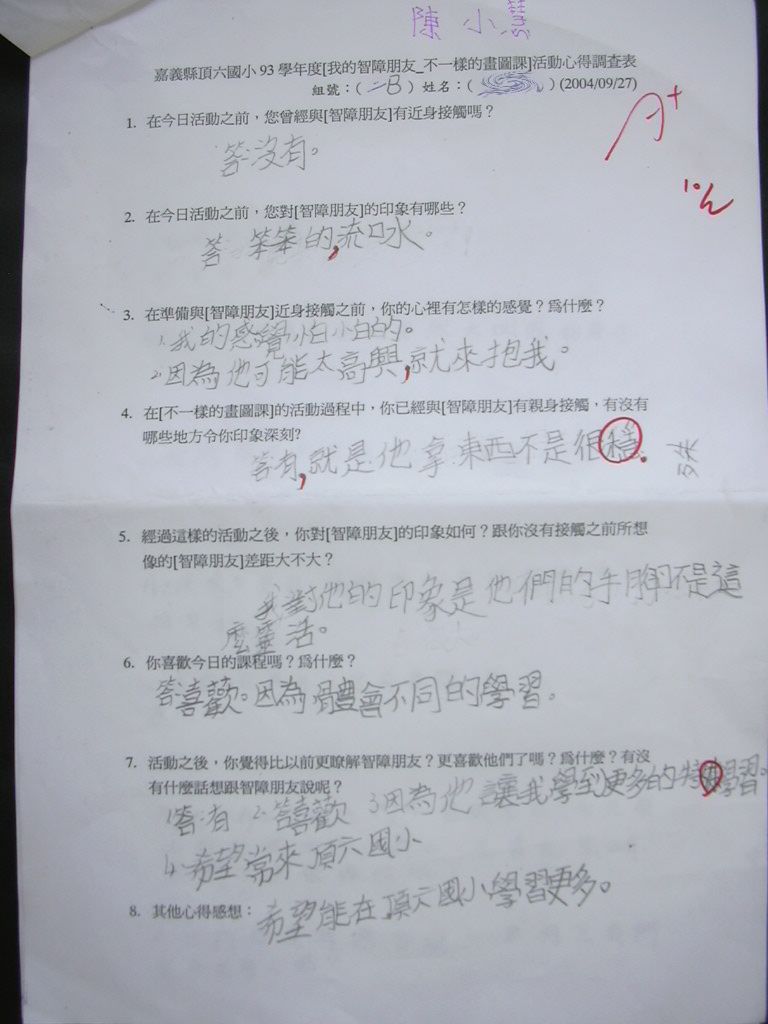 陳小慧
嘉義縣頂六國小93學年度[我的智障朋友_不一樣的畫圖課]活動心得調查表
組號：(二B) 姓名：( ) (2004/09/27)
A+
1. 在今日活動之前，您曾經與[智障朋友]有近身接觸嗎？
答:沒有。
2. 在今日活動之前，您對[智障朋友]的印象有哪些？
答 笨笨的,流口水。
3. 在準備與[智障朋友]近身接觸之前，你的心裡有怎樣的感覺？為什麼？
1.我的感覺小白小白的。
2.因為他可能太高興,就來抱我。
4. 在[不一樣的畫圖課]的活動過程中，你已經與[智障朋友]有親身接觸，有沒有
哪些地方令你印象深刻?
答:有,就是他拿東西不是很穩.
5. 經過這樣的活動之後，你對[智障朋友]的印象如何？跟你沒有接觸之前所想
像的[智障朋友]差距大不大？
我對他的印象是他們的手腳不是這
麼靈活。
6. 你喜歡今日的課程嗎？為什麼？
答:喜歡。因為體會不同的學習。
7. 活動之後，你覺得比以前更瞭解智障朋友？更喜歡他們了嗎？為什麼？有沒
有什麼話想跟智障朋友說呢？
1答:有 2.答喜歡 3因為他讓我學到更多的特殊學習。
4.希望常來頂六國小
8. 其他心得感想：希望能在頂六國小學習更多。